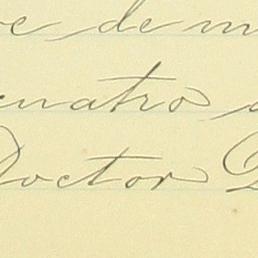 de
cuatro
Doctor